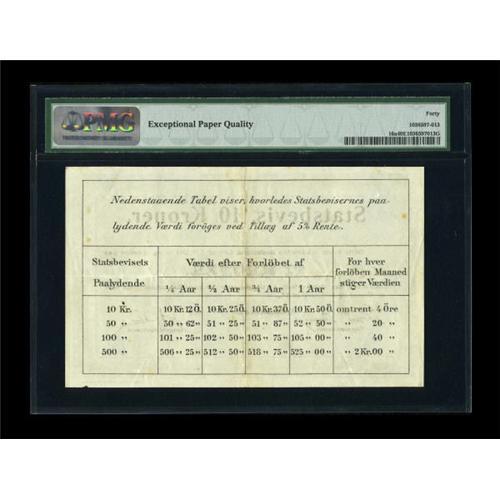 PMG
Exceptional Paper Quality
Forty
1036597-013
Nedenstaaende Tabel viser, hvorledes Statsbevisernes paa-
lydende Værdi foröges ved Tillæg af 5% Rente.
Statsbevisets Paalydende | Værdi efter Forlöbet af | For hver forlöben Maaned stiger Værdien
¼ Aar | ½ Aar | ¾ Aar | 1 Aar
10 Kr. | 10 Kr. 12 Ö. | 10 Kr. 25 Ö. | 10 Kr. 37 Ö. | 10 Kr. 50 Ö. | omtrent 4 Öre
50 „ | 50 „ 62 „ | 51 „ 25 „ | 51 „ 87 „ | 52 „ 50 „ | „ 20 „
100 „ | 101 „ 25 „ | 102 „ 50 „ | 103 „ 75 „ | 105 „ 00 „ | „ 40 „
500 „ | 506 „ 25 „ | 512 „ 50 „ | 518 „ 75 „ | 525 „ 00 „ | „ 2 Kr. 00 „